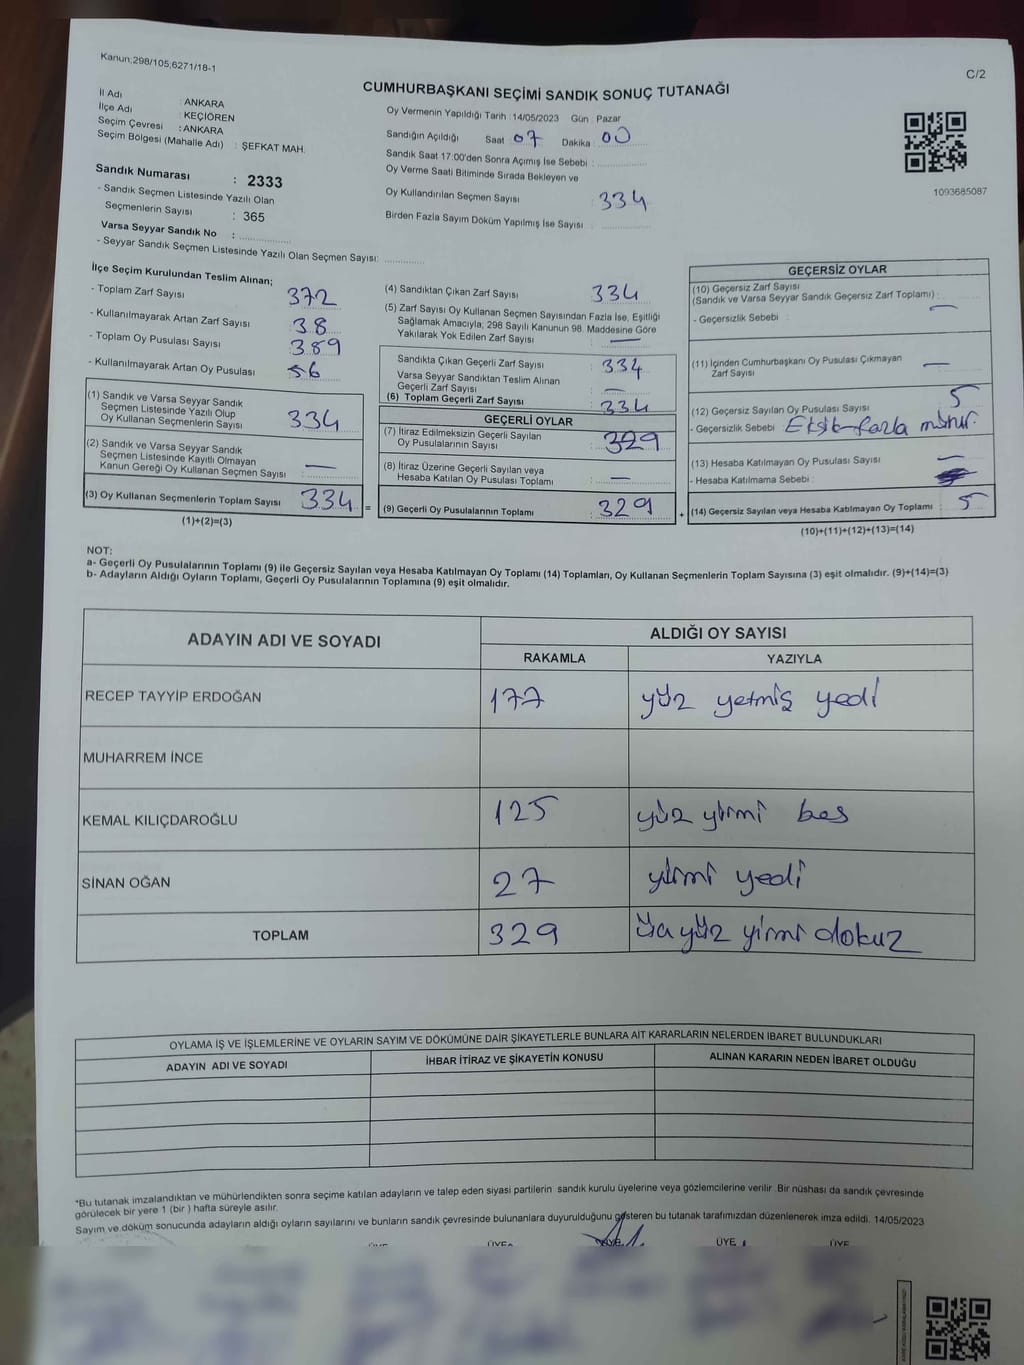 Kanun;298/105;6271/18-1
C/2
CUMHURBAŞKANI SEÇİMİ SANDIK SONUÇ TUTANAĞI
İl Adı : ANKARA
İlçe Adı : KEÇİÖREN
Seçim Çevresi : ANKARA
Seçim Bölgesi (Mahalle Adı) : ŞEFKAT MAH.
Sandık Numarası : 2333
- Sandık Seçmen Listesinde Yazılı Olan
Seçmenlerin Sayısı : 365
Varsa Seyyar Sandık No :
- Seyyar Sandık Seçmen Listesinde Yazılı Olan Seçmen Sayısı:
Oy Vermenin Yapıldığı Tarih : 14/05/2023 Gün : Pazar
Sandığın Açıldığı Saat 07 Dakika : 00
Sandık Saat 17:00'den Sonra Açımış İse Sebebi :
Oy Verme Saati Bitiminde Sırada Bekleyen ve
Oy Kullandırılan Seçmen Sayısı : 334
Birden Fazla Sayım Döküm Yapılmış İse Sayısı :
1093685087
İlçe Seçim Kurulundan Teslim Alınan;
- Toplam Zarf Sayısı 372
- Kullanılmayarak Artan Zarf Sayısı 38
- Toplam Oy Pusulası Sayısı 389
- Kullanılmayarak Artan Oy Pusulası 56
(1) Sandık ve Varsa Seyyar Sandık
Seçmen Listesinde Yazılı Olup
Oy Kullanan Seçmenlerin Sayısı 334
(2) Sandık ve Varsa Seyyar Sandık
Seçmen Listesinde Kayıtlı Olmayan
Kanun Gereği Oy Kullanan Seçmen Sayısı : —
(3) Oy Kullanan Seçmenlerin Toplam Sayısı : 334 =
(1)+(2)=(3)
(4) Sandıktan Çıkan Zarf Sayısı : 334
(5) Zarf Sayısı Oy Kullanan Seçmen Sayısından Fazla İse, Eşitliği
Sağlamak Amacıyla; 298 Sayılı Kanunun 98. Maddesine Göre
Yakılarak Yok Edilen Zarf Sayısı : —
Sandıkta Çıkan Geçerli Zarf Sayısı : 334
Varsa Seyyar Sandıktan Teslim Alınan
Geçerli Zarf Sayısı : —
(6) Toplam Geçerli Zarf Sayısı : 334
GEÇERLİ OYLAR
(7) İtiraz Edilmeksizin Geçerli Sayılan
Oy Pusulalarının Sayısı : 329
(8) İtiraz Üzerine Geçerli Sayılan veya
Hesaba Katılan Oy Pusulası Toplamı : —
(9) Geçerli Oy Pusulalarının Toplamı : 329 +
GEÇERSİZ OYLAR
(10) Geçersiz Zarf Sayısı
(Sandık ve Varsa Seyyar Sandık Geçersiz Zarf Toplamı) : —
- Geçersizlik Sebebi :
(11) İçinden Cumhurbaşkanı Oy Pusulası Çıkmayan
Zarf Sayısı : —
(12) Geçersiz Sayılan Oy Pusulası Sayısı : 5
- Geçersizlik Sebebi : Eksik-fazla mühür.
(13) Hesaba Katılmayan Oy Pusulası Sayısı : —
- Hesaba Katılmama Sebebi :
(14) Geçersiz Sayılan veya Hesaba Katılmayan Oy Toplamı : 5
(10)+(11)+(12)+(13)=(14)
NOT:
a- Geçerli Oy Pusulalarının Toplamı (9) ile Geçersiz Sayılan veya Hesaba Katılmayan Oy Toplamı (14) Toplamları, Oy Kullanan Seçmenlerin Toplam Sayısına (3) eşit olmalıdır. (9)+(14)=(3)
b- Adayların Aldığı Oyların Toplamı, Geçerli Oy Pusulalarının Toplamına (9) eşit olmalıdır.
ADAYIN ADI VE SOYADI ALDIĞI OY SAYISI
RAKAMLA YAZIYLA
RECEP TAYYİP ERDOĞAN 177 yüz yetmiş yedi
MUHARREM İNCE
KEMAL KILIÇDAROĞLU 125 yüz yirmi beş
SİNAN OĞAN 27 yirmi yedi
TOPLAM 329 yüz yirmi dokuz
OYLAMA İŞ VE İŞLEMLERİNE VE OYLARIN SAYIM VE DÖKÜMÜNE DAİR ŞİKAYETLERLE BUNLARA AİT KARARLARIN NELERDEN İBARET BULUNDUKLARI
ADAYIN ADI VE SOYADI İHBAR İTİRAZ VE ŞİKAYETİN KONUSU ALINAN KARARIN NEDEN İBARET OLDUĞU
*Bu tutanak imzalandıktan ve mühürlendikten sonra seçime katılan adayların ve talep eden siyasi partilerin sandık kurulu üyelerine veya gözlemcilerine verilir .Bir nüshası da sandık çevresinde
görülecek bir yere 1 (bir ) hafta süreyle asılır.
Sayım ve döküm sonucunda adayların aldığı oyların sayılarını ve bunların sandık çevresinde bulunanlara duyurulduğunu gösteren bu tutanak tarafımızdan düzenlenerek imza edildi. 14/05/2023
ÜYE ÜYE ÜYE ÜYE ÜYE